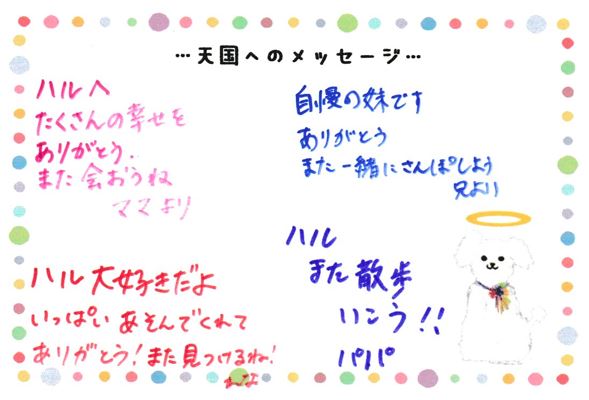 …天国へのメッセージ…
ハルへ
たくさんの幸せを
ありがとう.
また会おうね
ママより
自慢の妹です
ありがとう
また一緒にさんぽしよう
兄より
ハル大好きだよ
いっぱいあそんでくれて
ありがとう!また見つけるね!
ハル
また散歩
いこう!!
パパ